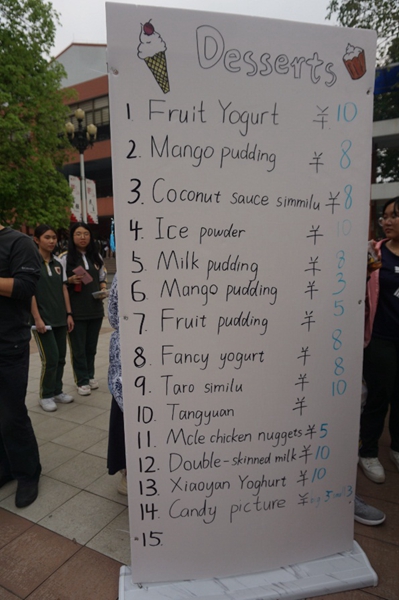 Desserts
1. Fruit Yogurt ¥ 10
2. Mango pudding ¥ 8
3. Coconut sauce simmilu ¥ 8
4. Ice powder ¥ 10
5. Milk pudding ¥ 8
6. Mango pudding ¥ 3
7. Fruit pudding ¥ 5
8. Fancy yogurt ¥ 8
9. Taro similu ¥ 8
10. Tangyuan ¥ 10
11. Mcle chicken nuggets ¥ 5
12. Double-skinned milk ¥ 10
13. Xiaoyan Yoghurt ¥ 10
14. Candy picture ¥
15.